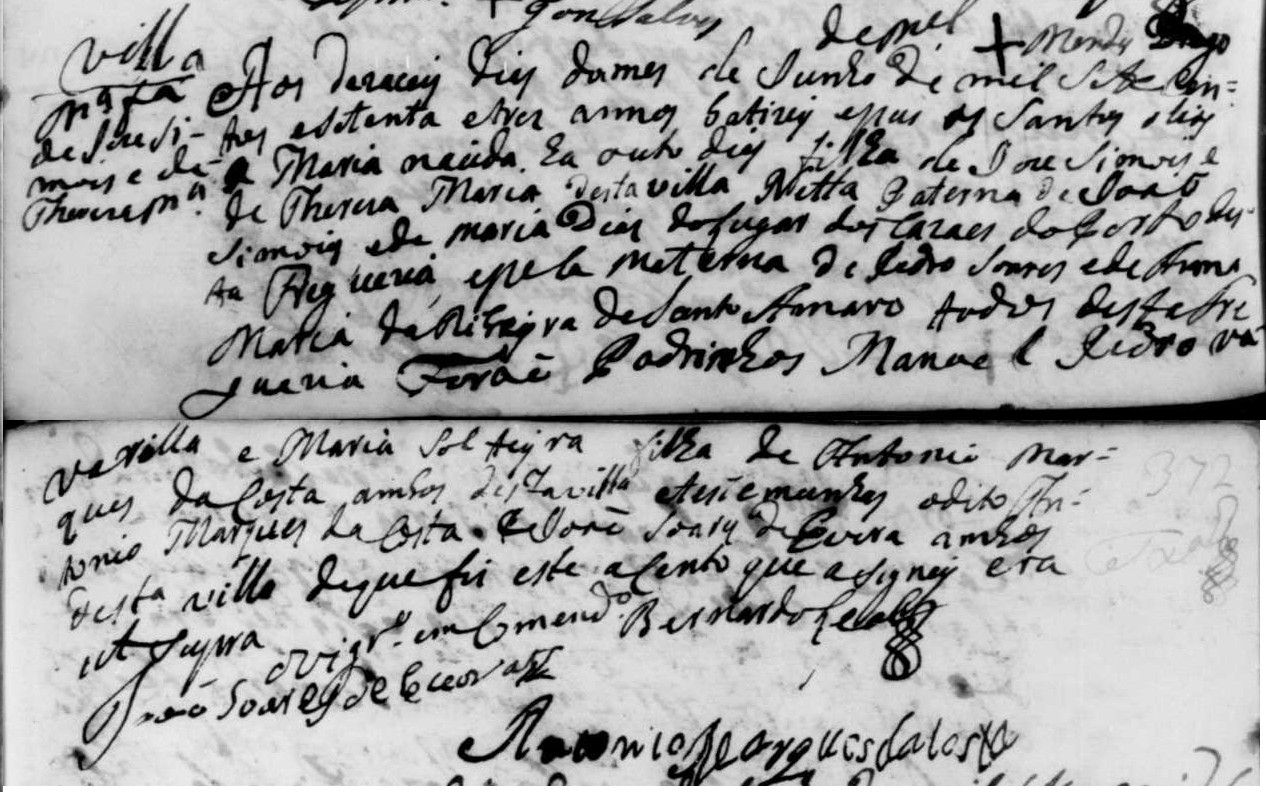 Gonsalves
de Mel + Mendes Diogo
villa
Mª fª
de Joze Si-
mois e de
Thereza Mª
Aos dazaceis dias domes de Junho de mil Sete Cen-
tos e setenta e tres annos batizei e pus os Santos olios
a Maria nacida ha outo dias filha de Joze Simois e
de Thereza Maria desta villa Netta Paterna de Joaõ
Simois e de Maria Dias do Lugar dos Cazaes do Porto des-
ta Freguezia, e pela Materna de Pedro Soares e de Anna
Maria da Ribeyra de Santo Amaro todos desta Fre
guezia Foraõ Padrinhos Manoel Pedro va
varilla e Maria Solteyra filha de Antonio Mar-
ques da Costa ambos desta villa e testemunhas o dito An-
tonio Marques da Costa. E Joaõ Soares de ambos
desta villa de que fis este acento que asygney era
ut supra
o vigrº emComendº Bernardo Leal
Joaõ Soares de
Antonio Marques da Costa
372